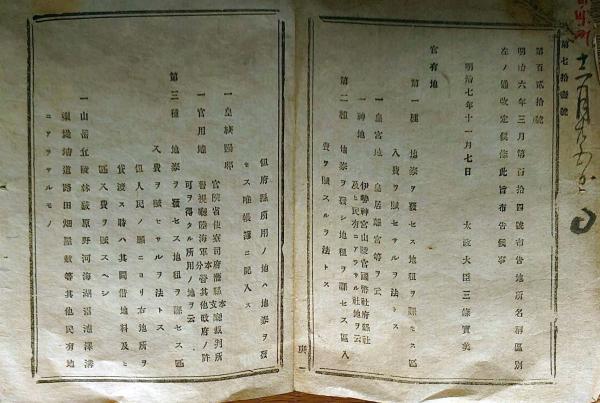 第七拾壹號
第百貳拾號
明治六年三月第百十四號布告地所名稱區別
左ノ通改定候條此旨布告候事
明治七年十一月七日
太政大臣三條實美
官有地
第一種 地券ヲ發セス地租ヲ課セス區
入費ヲ賦セサルヲ法トス
一皇宮地 皇居離宮等ヲ云
一神地 伊勢神宮山陵官國幣社府縣社
及ヒ民有ニアラサル社地ヲ云
第二種 地券ヲ發シ地租ヲ課セス區入
費ヲ賦スルヲ法トス
但府縣所用ノ地ハ地券ヲ發
セス唯帳簿ニ記入ス
一皇族賜邸
一官用地 官院省使寮司府藩縣本支廳裁判所
警視廳陸海軍本分營其他政府ノ許
可ヲ得タル所用ノ地ヲ云
第三種 地券ヲ發セス地租ヲ課セス區
入費ヲ賦セサルヲ法トス
但人民ノ願ニヨリ右地所ヲ
貸渡ス時ハ其間借地料及ヒ
區入費ヲ賦スヘシ
一山岳丘陵林藪原野河海湖沼池澤溝
渠堤塘道路田畑屋敷等其他民有地
ニアラサルモノ